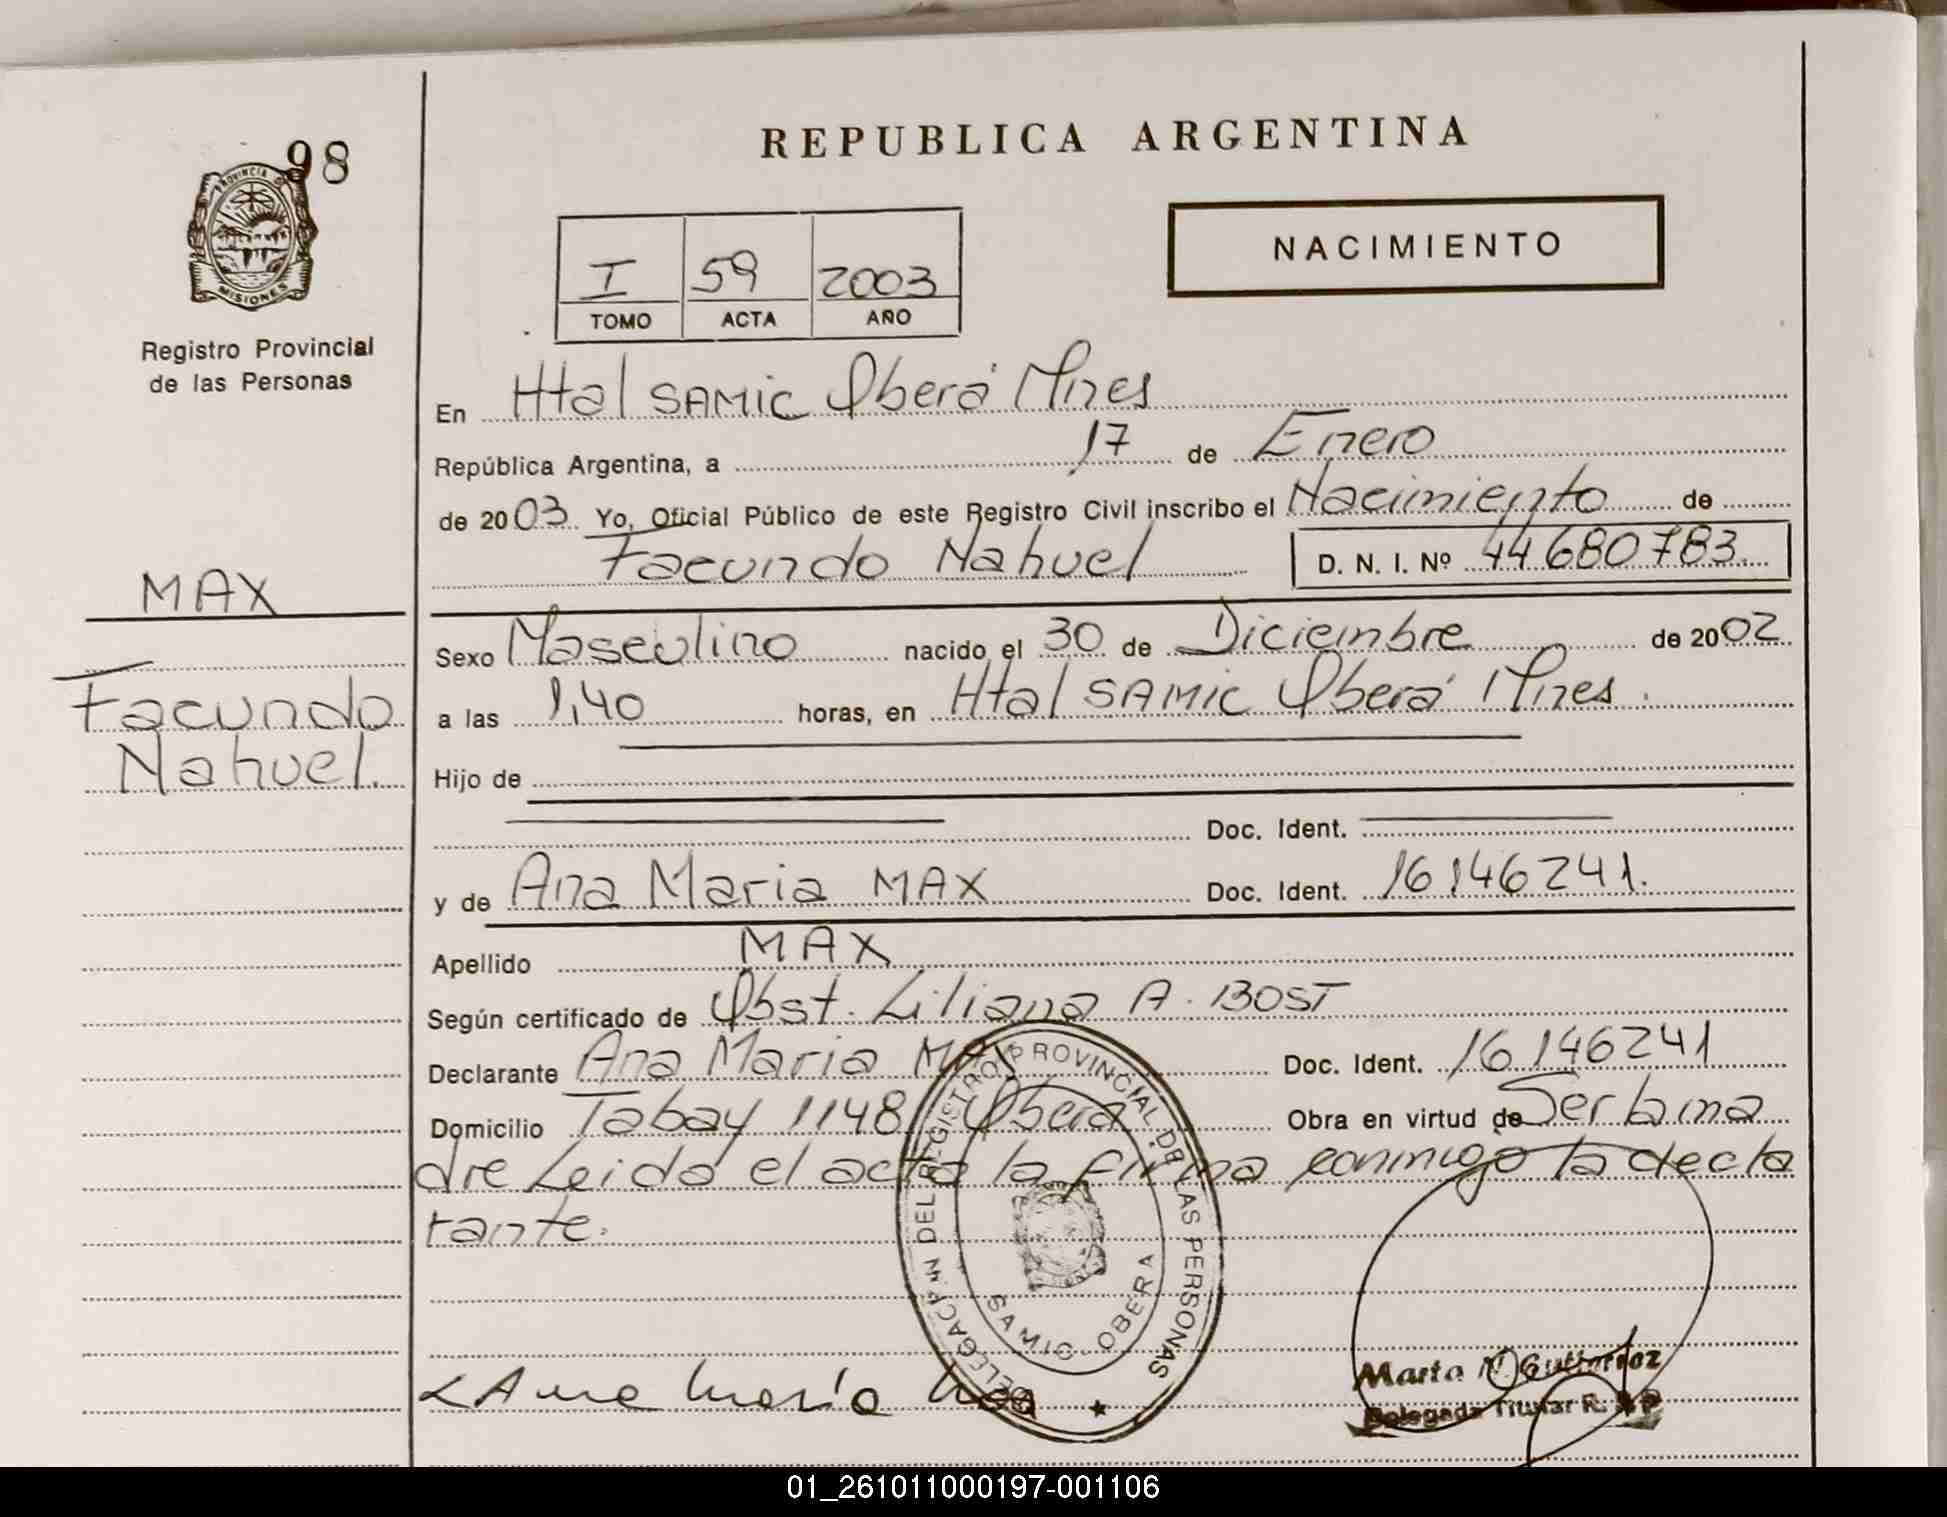 98
PROVINCIA DE
MISIONES
Registro Provincial
de las Personas
MAX
Facundo
Nahuel.
REPUBLICA ARGENTINA
I 59 2003
TOMO ACTA AÑO
NACIMIENTO
En Htal SAMIC Oberá Mnes
República Argentina, a 17 de Enero
de 2003 Yo, Oficial Público de este Registro Civil inscribo el Nacimiento de
Facundo Nahuel D. N. I. Nº 44680783
Sexo Masculino nacido el 30 de Diciembre de 2002
a las 1,40 horas, en Htal SAMIC Oberá Mnes.
Hijo de
Doc. Ident.
y de Ana Maria MAX Doc. Ident. 16146241.
Apellido MAX
Según certificado de Obst. Liliana A. BOST
Declarante Ana Maria MAX Doc. Ident. 16146241
Domicilio Tabay 1148 Oberá Obra en virtud de Ser la ma
dre Leida el acta la firma conmigo la decla
rante.
DELEGACION DEL REGISTRO PROVINCIAL DE LAS PERSONAS
SAMIC - OBERA
Ana María Max
Marta N. Gutierrez
Delegada Titular R. P. P
01_261011000197-001106